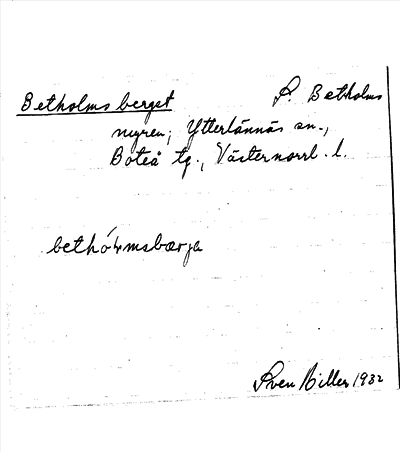 Betholmsberget S. Betholms
myren, Ytterlännäs sn.,
Boteå tg., Västernorrl. l.
Sven Hiller 1932